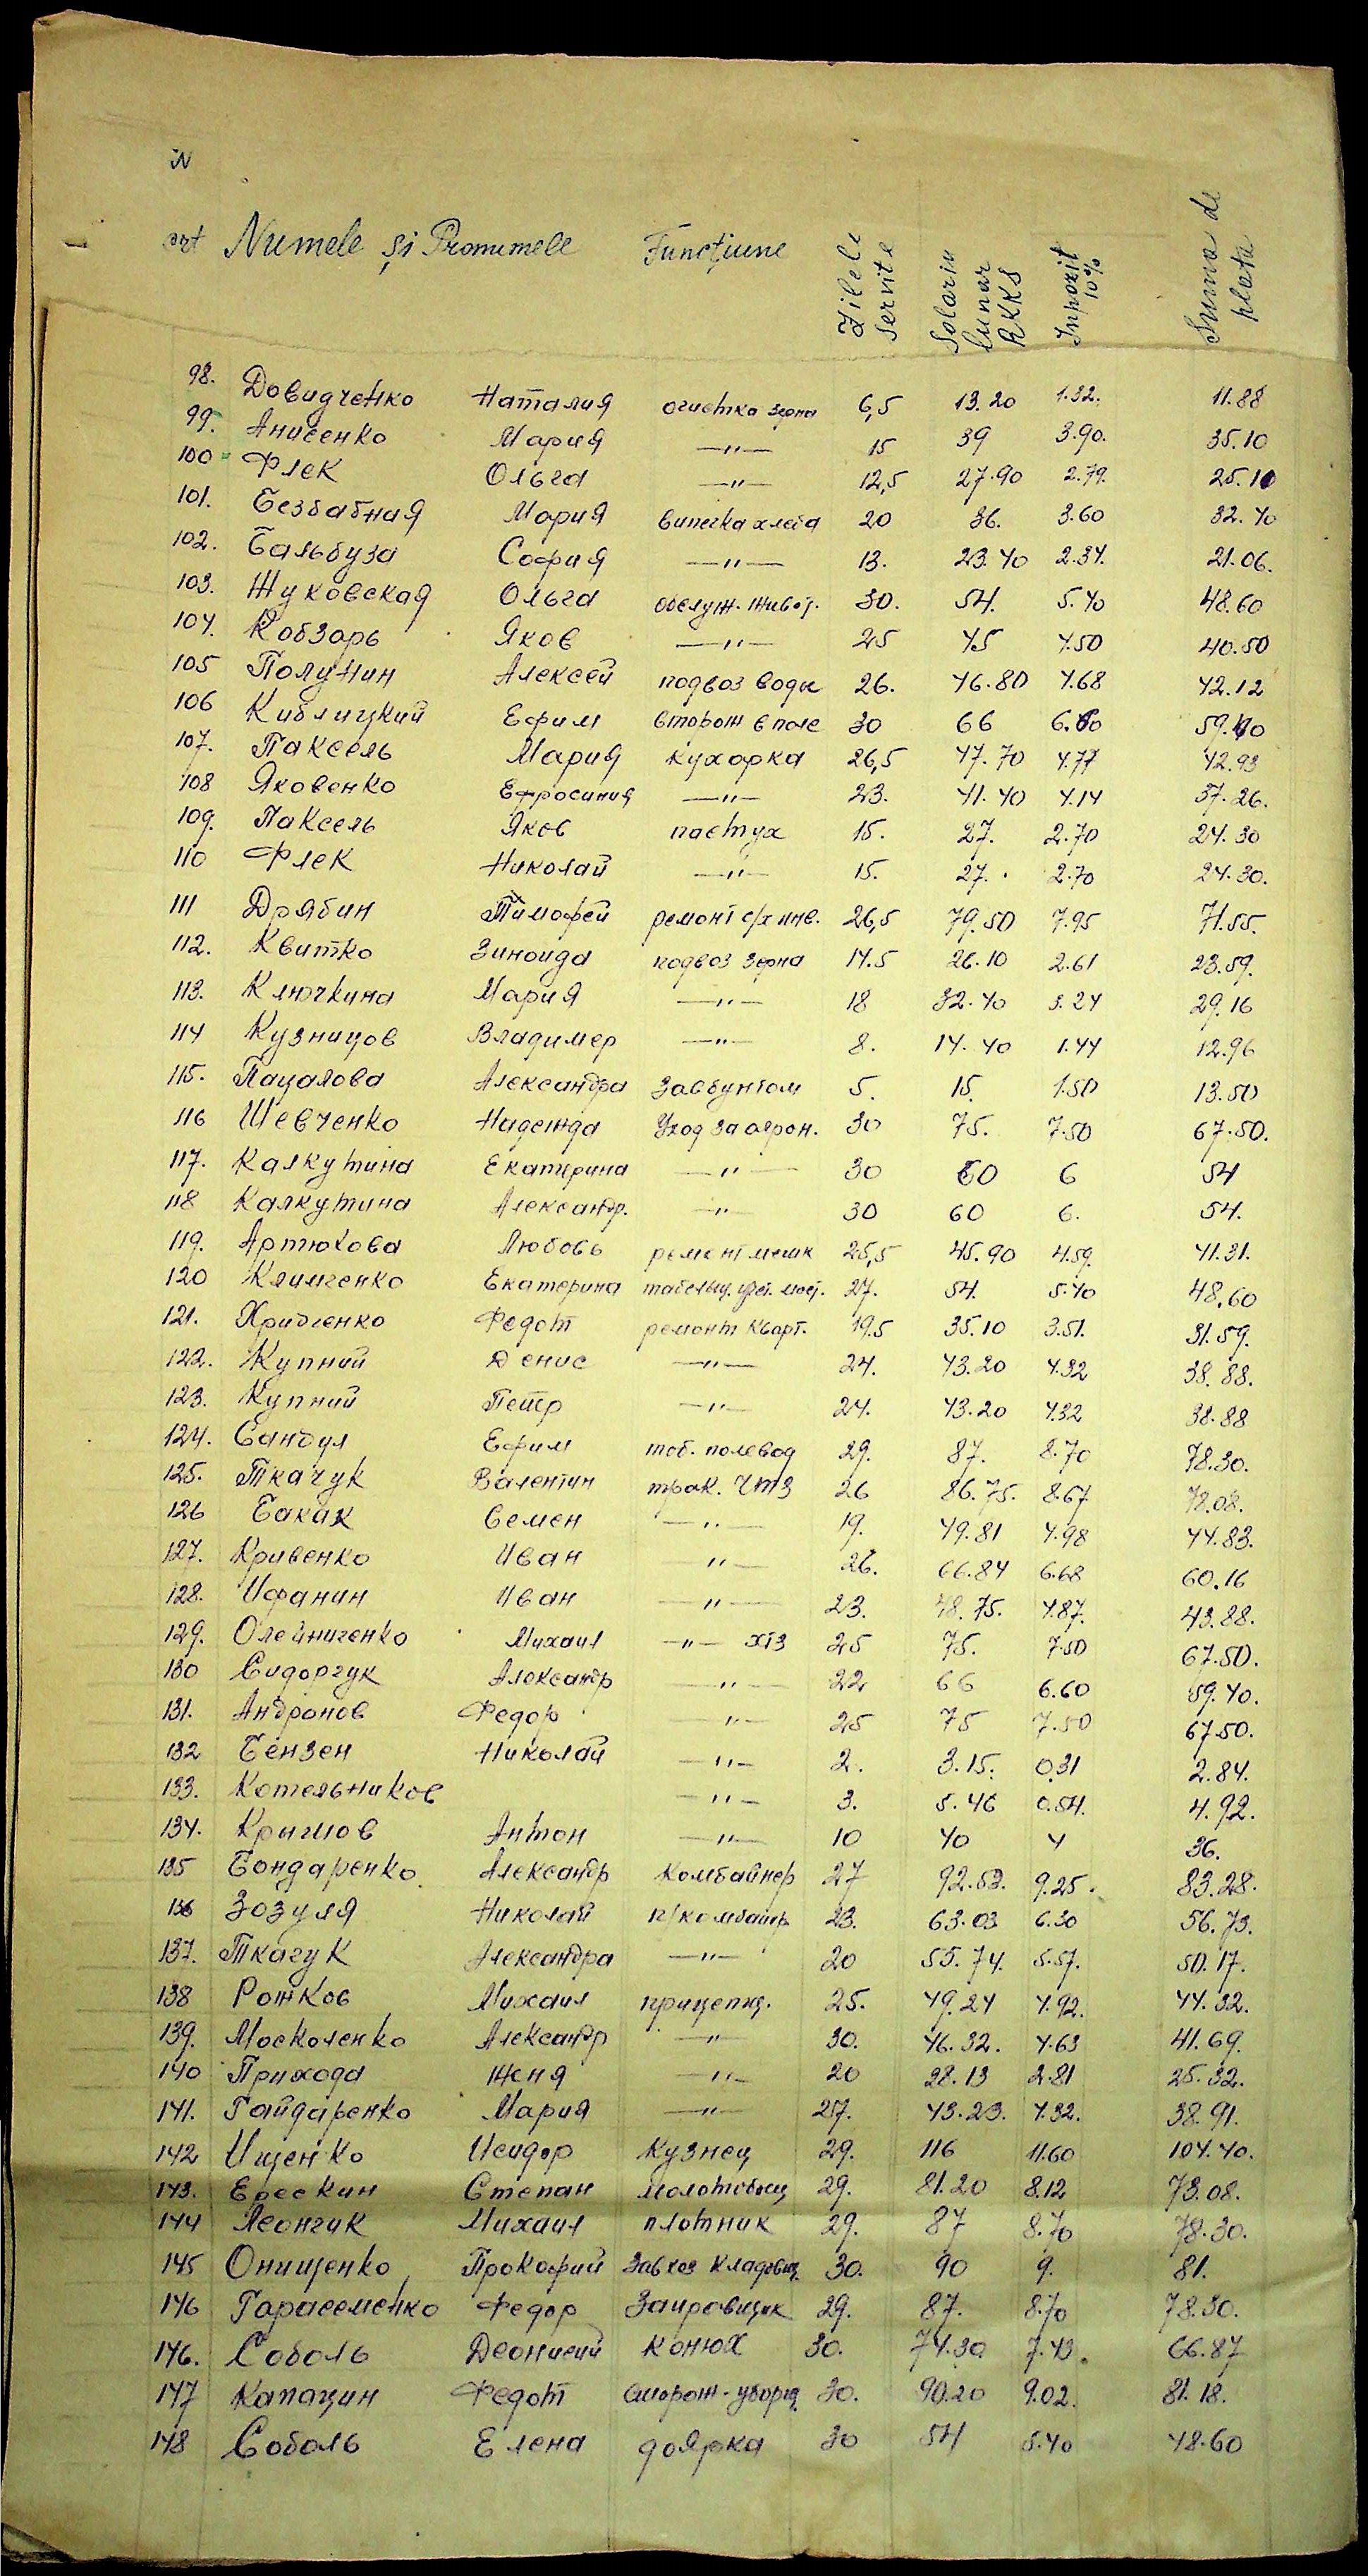 N
crt Numele și Pronumele Funcțiune Zilele servite Solariu lunar RKKS Inpozit 10% Suma de plata
98. Довидченко Наталия очистка зерна 6,5 13.20 1.32. 11.88
99. Анисенко Мария —"— 15 39 3.90. 35.10
100 Флек Ольга —"— 12,5 27.90 2.79. 25.10
101. Безбабная Мария випечка хлеба 20 36. 3.60 32.40
102. Бальбуза София —"— 13. 23.40 2.34. 21.06.
103. Жуковская Ольга обслуж. живот. 30. 54. 5.40 48.60
104. Кобзарь Яков —"— 25 45 4.50 40.50
105 Полунин Алексей подвоз воды 26. 46.80 4.68 42.12
106 Киблицкий Ефим сторож в поле 30 66 6.60 59.40
107. Паксель Мария кухарка 26,5 47.70 4.77 42.93
108 Яковенко Ефросиния —"— 23. 41.40 4.14 37.26.
109. Паксель Яков пастух 15. 27. 2.70 24.30
110 Флек Николай —"— 15. 27. 2.70 24.30.
111 Дрябин Тимофей ремонт с/х инв. 26,5 79.50 7.95 71.55.
112. Квитко Зиноида подвоз зерна 14.5 26.10 2.61 23.59.
113. Ключкина Мария —"— 18 32.40 3.24 29.16
114 Кузницов Владимер —"— 8. 14.40 1.44 12.96
115. Пацалова Александра Завбунтом 5. 15. 1.50 13.50
116 Шевченко Надежда Уход за агрон. 30 75. 7.50 67.50.
117. Калкутина Екатирина —"— 30 60 6 54
118 Калкутина Александр. —"— 30 60 6. 54.
119. Артюхова Любовь ремонт мешк 25,5 45.90 4.59. 41.31.
120 Климченко Екатерина табельщ. 27. 54. 5.40 48.60
121. Хридченко Федот ремонт кварт. 19.5 35.10 3.51. 31.59.
122. Купний Денис —"— 24. 43.20 4.32 38.88.
123. Купний Петр —"— 24. 43.20 4.32 38.88
124. Сандул Ефим таб. полевод 29. 87. 8.70 78.30.
125. Ткачук Валентин трак. ЧТЗ 26 86.75. 8.67 78.08.
126 Бакак Семен —"— 19. 49.81 4.98 44.83.
127. Кривенко Иван "— 26. 66.84 6.68 60.16
128. Ифанин Иван —"— 23. 48.75. 4.87. 43.88.
129. Олейниченко Михаил —"— ХТЗ 25 75. 7.50 67.50.
130 Сидорчук Александр —"— 22 66 6.60 59.40.
131. Андронов Федор —"— 25 75 7.50 67.50.
132 Бензен Николай —"— 2. 3.15. 0.31 2.84.
133. Котельников —"— 3. 5.46 0.54. 4.92.
134. Крымов Антон —"— 10 40 4 36.
135 Бондаренко Александр комбайнер 27 92.53. 9.25. 83.28.
136 Зозуля Николай п/комбайр. 23. 63.03 6.30 56.73.
137. Ткачук Александра —"— 20 55.74. 5.57. 50.17.
138 Рожков Михаил прицепщ. 25. 49.24 4.92. 44.32.
139. Москоленко Александр —"— 30. 46.32. 4.63 41.69.
140 Прихода Женя —"— 20 28.13 2.81 25.32.
141. Гайдаренко Мария —"— 27. 43.23. 4.32. 38.91.
142 Ищенко Исидор кузнец 29. 116 11.60 104.40.
143. Ерескин Степан молотобоец 29. 81.20 8.12 73.08.
144 Леончик Михаил плотник 29. 87 8.70 78.30.
145 Онищенко Прокофий Завхоз кладовщ. 30. 90 9. 81.
146 Гарасеменко Федор Заправщик 29. 87. 8.70 78.30.
146. Соболь Деонисий конюх 30. 74.30 7.43. 66.87
147 Капацин Федот сторож-уборщ. 30. 90.20 9.02. 81.18.
148 Соболь Елена доярка 30 54 5.40 48.60